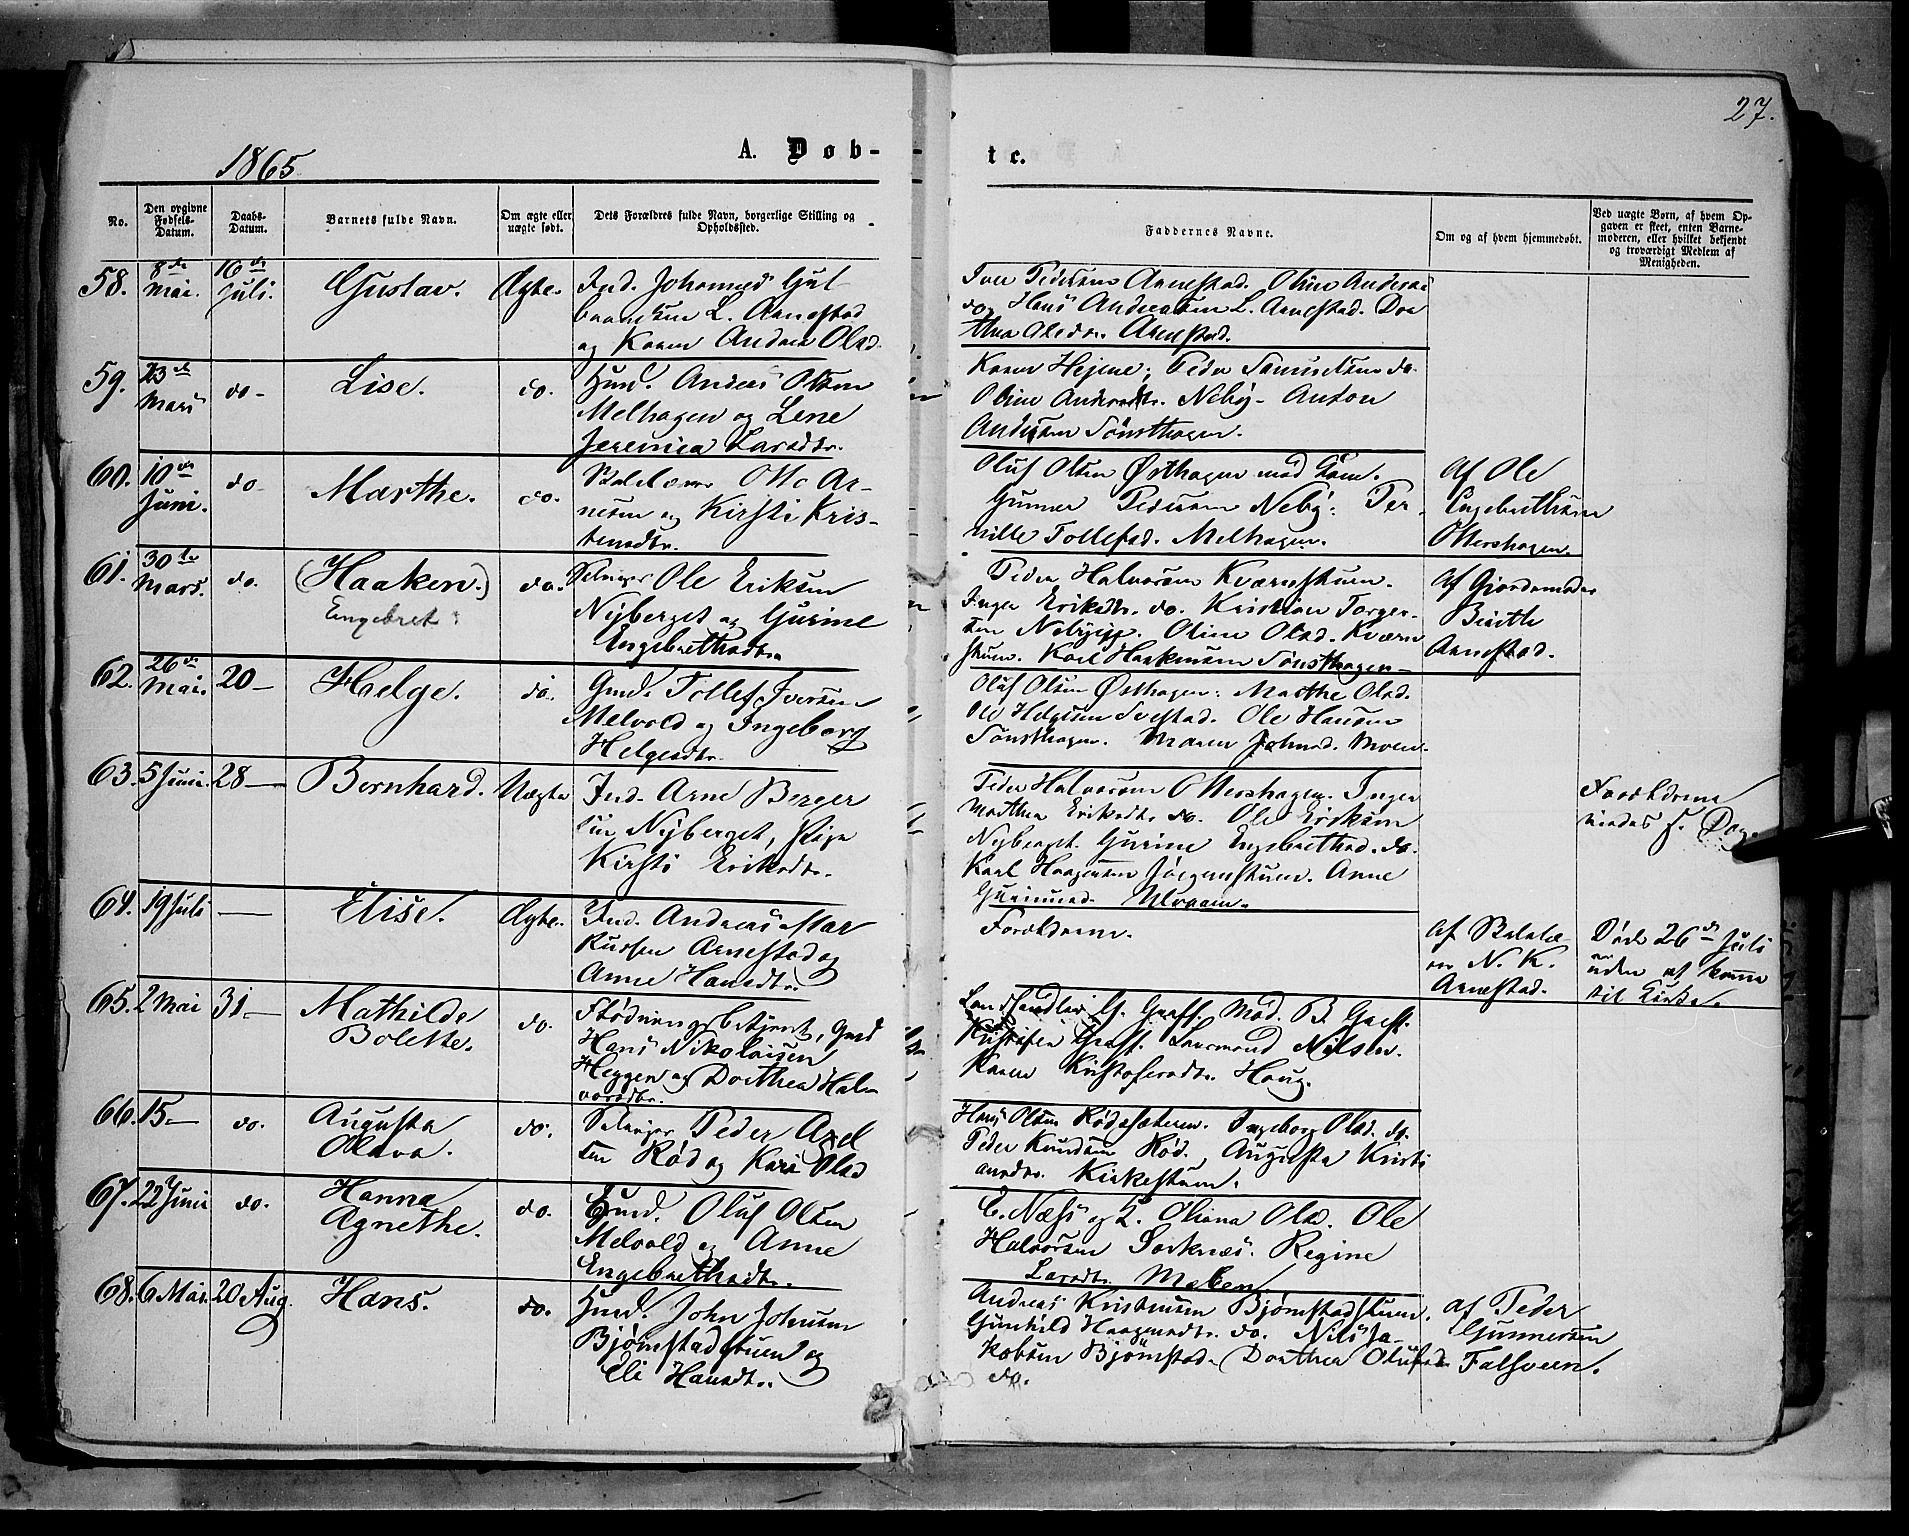 27.
1865
A. Døb-
te.
No.
Den opgivne Fødsels-Datum.
Daabs-Datum.
Barnets fulde Navn.
Om ægte eller uægte født.
Dets Forældres fulde Navn, borgerlige Stilling og Opholdssted.
Faddernes Navne.
Om og af hvem hjemmedøbt.
Ved uægte Børn, af hvem Opgaven er skeet, enten Barnemoderen, eller hvilket bekjendt og troværdigt Medlem af Menigheden.
58.
8de Mai.
16de Juli.
Gustav.
Ægte.
Ind. Johannes Gul
brandsen L. Arnestad
og Karen Andrea Olsd.
Iver Pedersen Arnestad. Oline Anders
do. Hans Andreassen L. Arnestad. Dor
thea Olsdtr. Arnestad.
59.
23de Mars
do-
Lise.
do.
Husd. Anders Olsen
Melhagen og Lene
Jeremica Larsdtr.
Karen Hejene; Peder Samuelsen do
Oline Andersdtr. Neby- Anton
Andersen Sønsthagen.
60.
10de Juni.
do-
Marthe.
do.
Skolelærer Otto Ar-
nesen og Kirsti Kris-
tensdtr.
Oluf Olsen Østhagen med Kone.
Gunner Pedersen Neby: Per-
nille Tollefsd. Melhagen.
af Ole
Engebrethsen
Ottershagen.
61.
30te Mars.
do.
(Haaken.)
Engebret:
do.
Selveier Ole Eriksen
Nyberget og Gurine
Engebrethsdtr.
Peder Halvorsen Kværnstuen.
Inger Eriksdtr. do. Kristian Torger-
sen Nebyeje. Oline Olsd. Kværn
stuen. Karl Haakensen Sønsthagen-
af Gjordemoder
Birithe
Arnestad.
62.
26de Mai.
20-
Helge.
do.
Gmd. Tollef Iversen
Melvold og Ingeborg
Helgesdtr.
Oluf Olsen Østhagen: Marthe Olsd.
Ole Helgesen Svestad. Ole Hansen
Sønsthagen. Maren Johnsd. Moen.
63.
5 Juni.
28-
Bernhard.
Uægte
Ind. Arne Berger
sen Nyberget, Pige
Kirsti Eriksdtr.
Peder Halvorsen Ottershagen. Inger
Marthea Eriksdtr. do. Ole Eriksen
Nyberget. Gurine Engebrethsd. do.
Karl Haagensen Jørgenstuen. Anne
Gurinusd. Ulvaaen.
Forældrene
medes s. Dag.
64.
19 Juli
-
Elise.
Ægte.
Ind. Andreas Mar
kussen Arnestad og
Anne Hansdtr.
Forældrene.
af Skolelæ-
rer N. K.
Arnestad.
Døde 26de Juli
uden at komme
til Kirke.
65.
2 Mai
31-
Mathilde
Bolette.
do.
Flødningsbetjent, Gmd
Hans Nikolaisen
Heggen og Dorthea Hal-
vorsdtr.
Landhandler G. Graff. Mad. B. Graff.
Kristofer Graff. Lensmand Nilsen.
Karen Kristofersdtr. Haug.
66.
15-
do.
Augusta
Olava.
do.
Selveier Peder Axel
sen Rød og Kari Olsd
Hans Olsen Rødsæteren. Ingeborg Olsd. do.
Peder Knudsen Rød. Augusta Kristi
ansdtr. Kirkestuen.
67.
22 Juni
do.
Hanna
Agnethe.
do.
Gmd. Oluf Olsen
Melvold og Anne
Engebrethsdtr.
E. Næss og K. Oliana Olsd. Ole
Halvorsen Sorknæs. Regine
Larsdtr. Moken
68.
6 Mai.
20 Aug.
Hans.
do.
Husd. John Johnsen
Bjørnstadstuen og
Eli Hansdtr.
Andreas Kristensen Bjørnstadstuen.
Gunhild Haagensdtr. do. Nils Ja-
kobsen Bjørnstad. Dorthea Olufsd
do.
af Peder
Gunnersen
Falsveen.